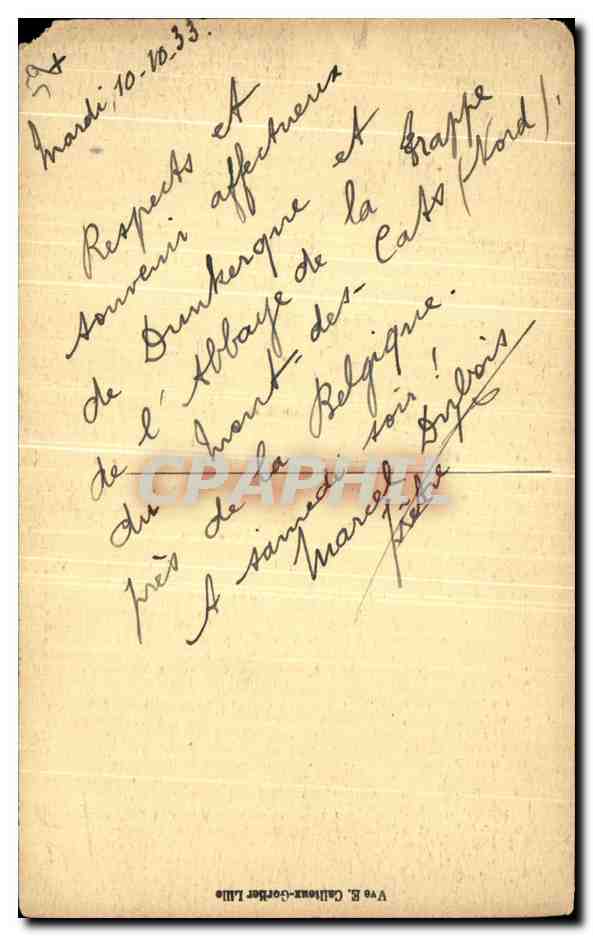 Mardi, 10-10-33.
Respects et
souvenir affectueux
de Dunkerque et
de l'Abbaye de la Trappe
du Mont-des-Cats (Nord),
près de la Belgique.
A samedi soir !
Marcel Dubois
prêtre
CPAPHIL
Vve E. Cailteux-Gortier Lille